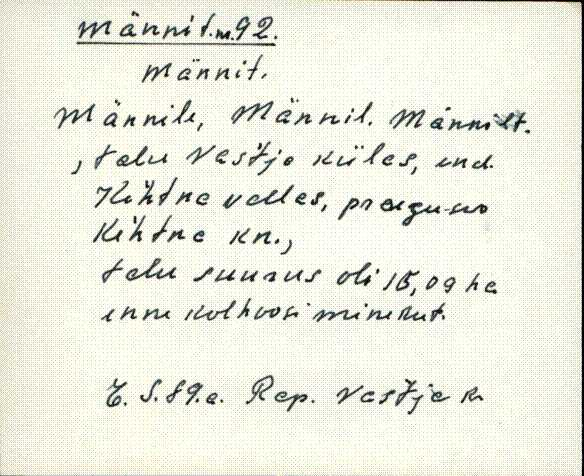 Männit. m. 92.
Männit.
Männile, Männil. Männilt.
, talu Vastja külas, end.
Kehtna vallas, praegu-
Kehtna kn.,
talu suurus oli 15,09 ha
enne kolhoosi minekut.
E. S. 89. a. Rap. Vastja k